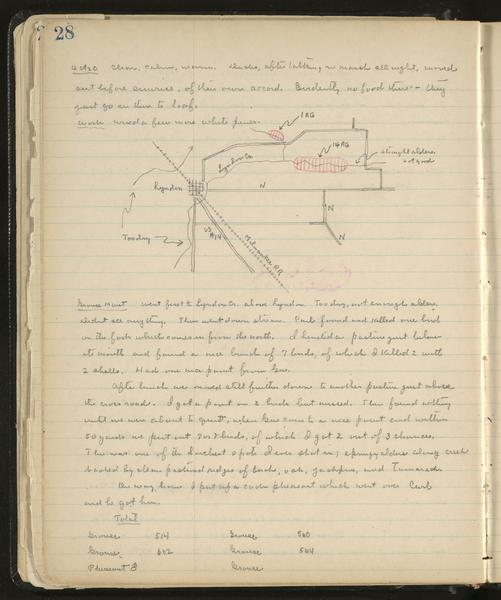 28
clear, calm, warm. Ducks, after latting in marsh all night, moved
out before sunrise, of their own accord. Evidently no food there — they
just go in there to loaf.
Work moved a few more white pines.
1 RG
14 RG
Lyndon Cr.
straight alders
not good
Lyndon
N
N
N
Too dry
US
Milwaukee RR
Grouse Hunt went first to Lyndon Cr. above Lyndon. Too dry, not enough alders,
didnt see anything. Then went down stream. Carl found and killed one bird
on the fork which comes in from the north. I hunted a pasture just below
its mouth and found a nice bunch of 7 birds, of which I killed 2 with
2 shells. Had one nice point from Gus.
After lunch we moved still further down to another pasture just above
the cross road. I got a point on 2 birds but missed. Then found nothing
until we were about to quit, when Gus came to a nice point and within
50 yards we put out 7 or 8 birds, of which I got 2 out of 3 chances.
This was one of the birdiest spots I ever shot in; springy alders along creek
backed by clean pastured ridges of birch, oak, jackpine, and Tamarack.
On way home I put up a cock pheasant which went over Carl
and he got him.
Total
Grouse 514 Grouse 560
Grouse 602 Grouse 564
Pheasant 8 Grouse